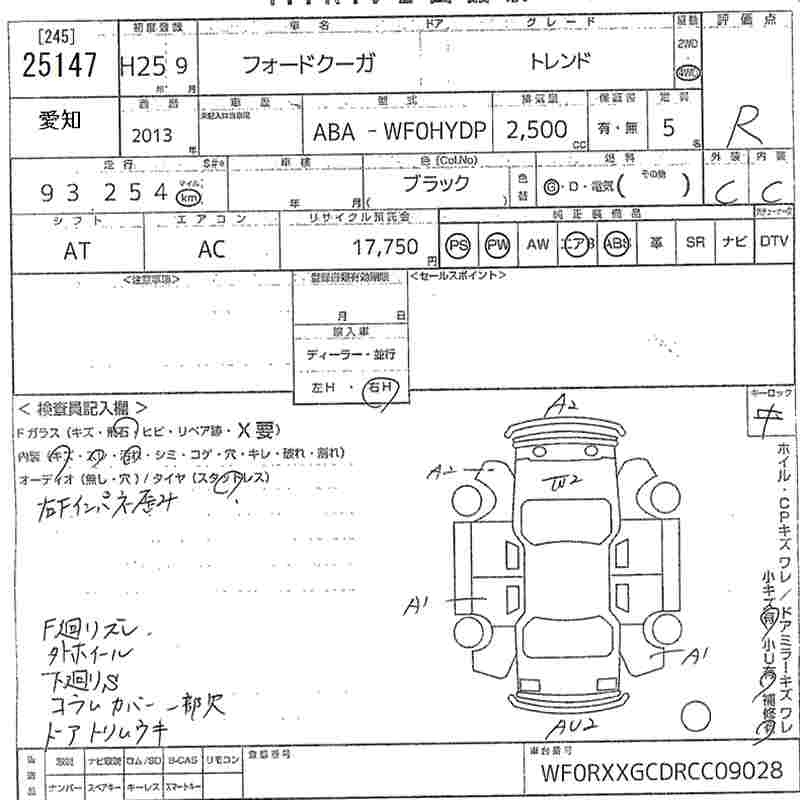 [245]
25147
初度登録
H25 9
年 月
車名
フォードクーガ
ドア
グレード
トレンド
駆動
2WD
4WD
評価点
R
愛知
西暦
2013
年
車歴
型式
ABA - WF0HYDP
排気量
2,500
CC
保証書
有・無
定員
5
名
走行
93 254
マイル
km
S#*
車検
年 月
色 (Col.No)
ブラック
( )
色替
燃料
G・D・電気( その他 )
外装
C
内装
C
シフト
AT
エアコン
AC
リサイクル預託金
17,750
円
純正装備品
PS PW AW エアB ABS 革 SR ナビ DTV
<注意事項>
登録書類有効期限
月 日
輸入車
ディーラー・並行
左H ・ 右H
<セールスポイント>
< 検査員記入欄 >
Fガラス (キズ・飛石・ヒビ・リペア跡・X要)
内装 (キズ・スレ・汚れ・シミ・コゲ・穴・キレ・破れ・割れ)
オーディオ (無し・穴) / タイヤ (スタッドレス)
右Fインパネ歪み
F廻リズレ
外ホイール
下廻りS
コラムカバー一部欠
ドアトリムウキ
A2
A2
W2
A1
A1
AU2
キーロック
ホイル・CPキズ ワレ / ドアミラーキズ ワレ
小キズ有 小U有 補修有
ナビ取説 ロム/SD B-CAS リモコン
ナンバー スペアキー キーレス スマートキー
登録番号
車台番号
WF0RXXGCDRCC09028